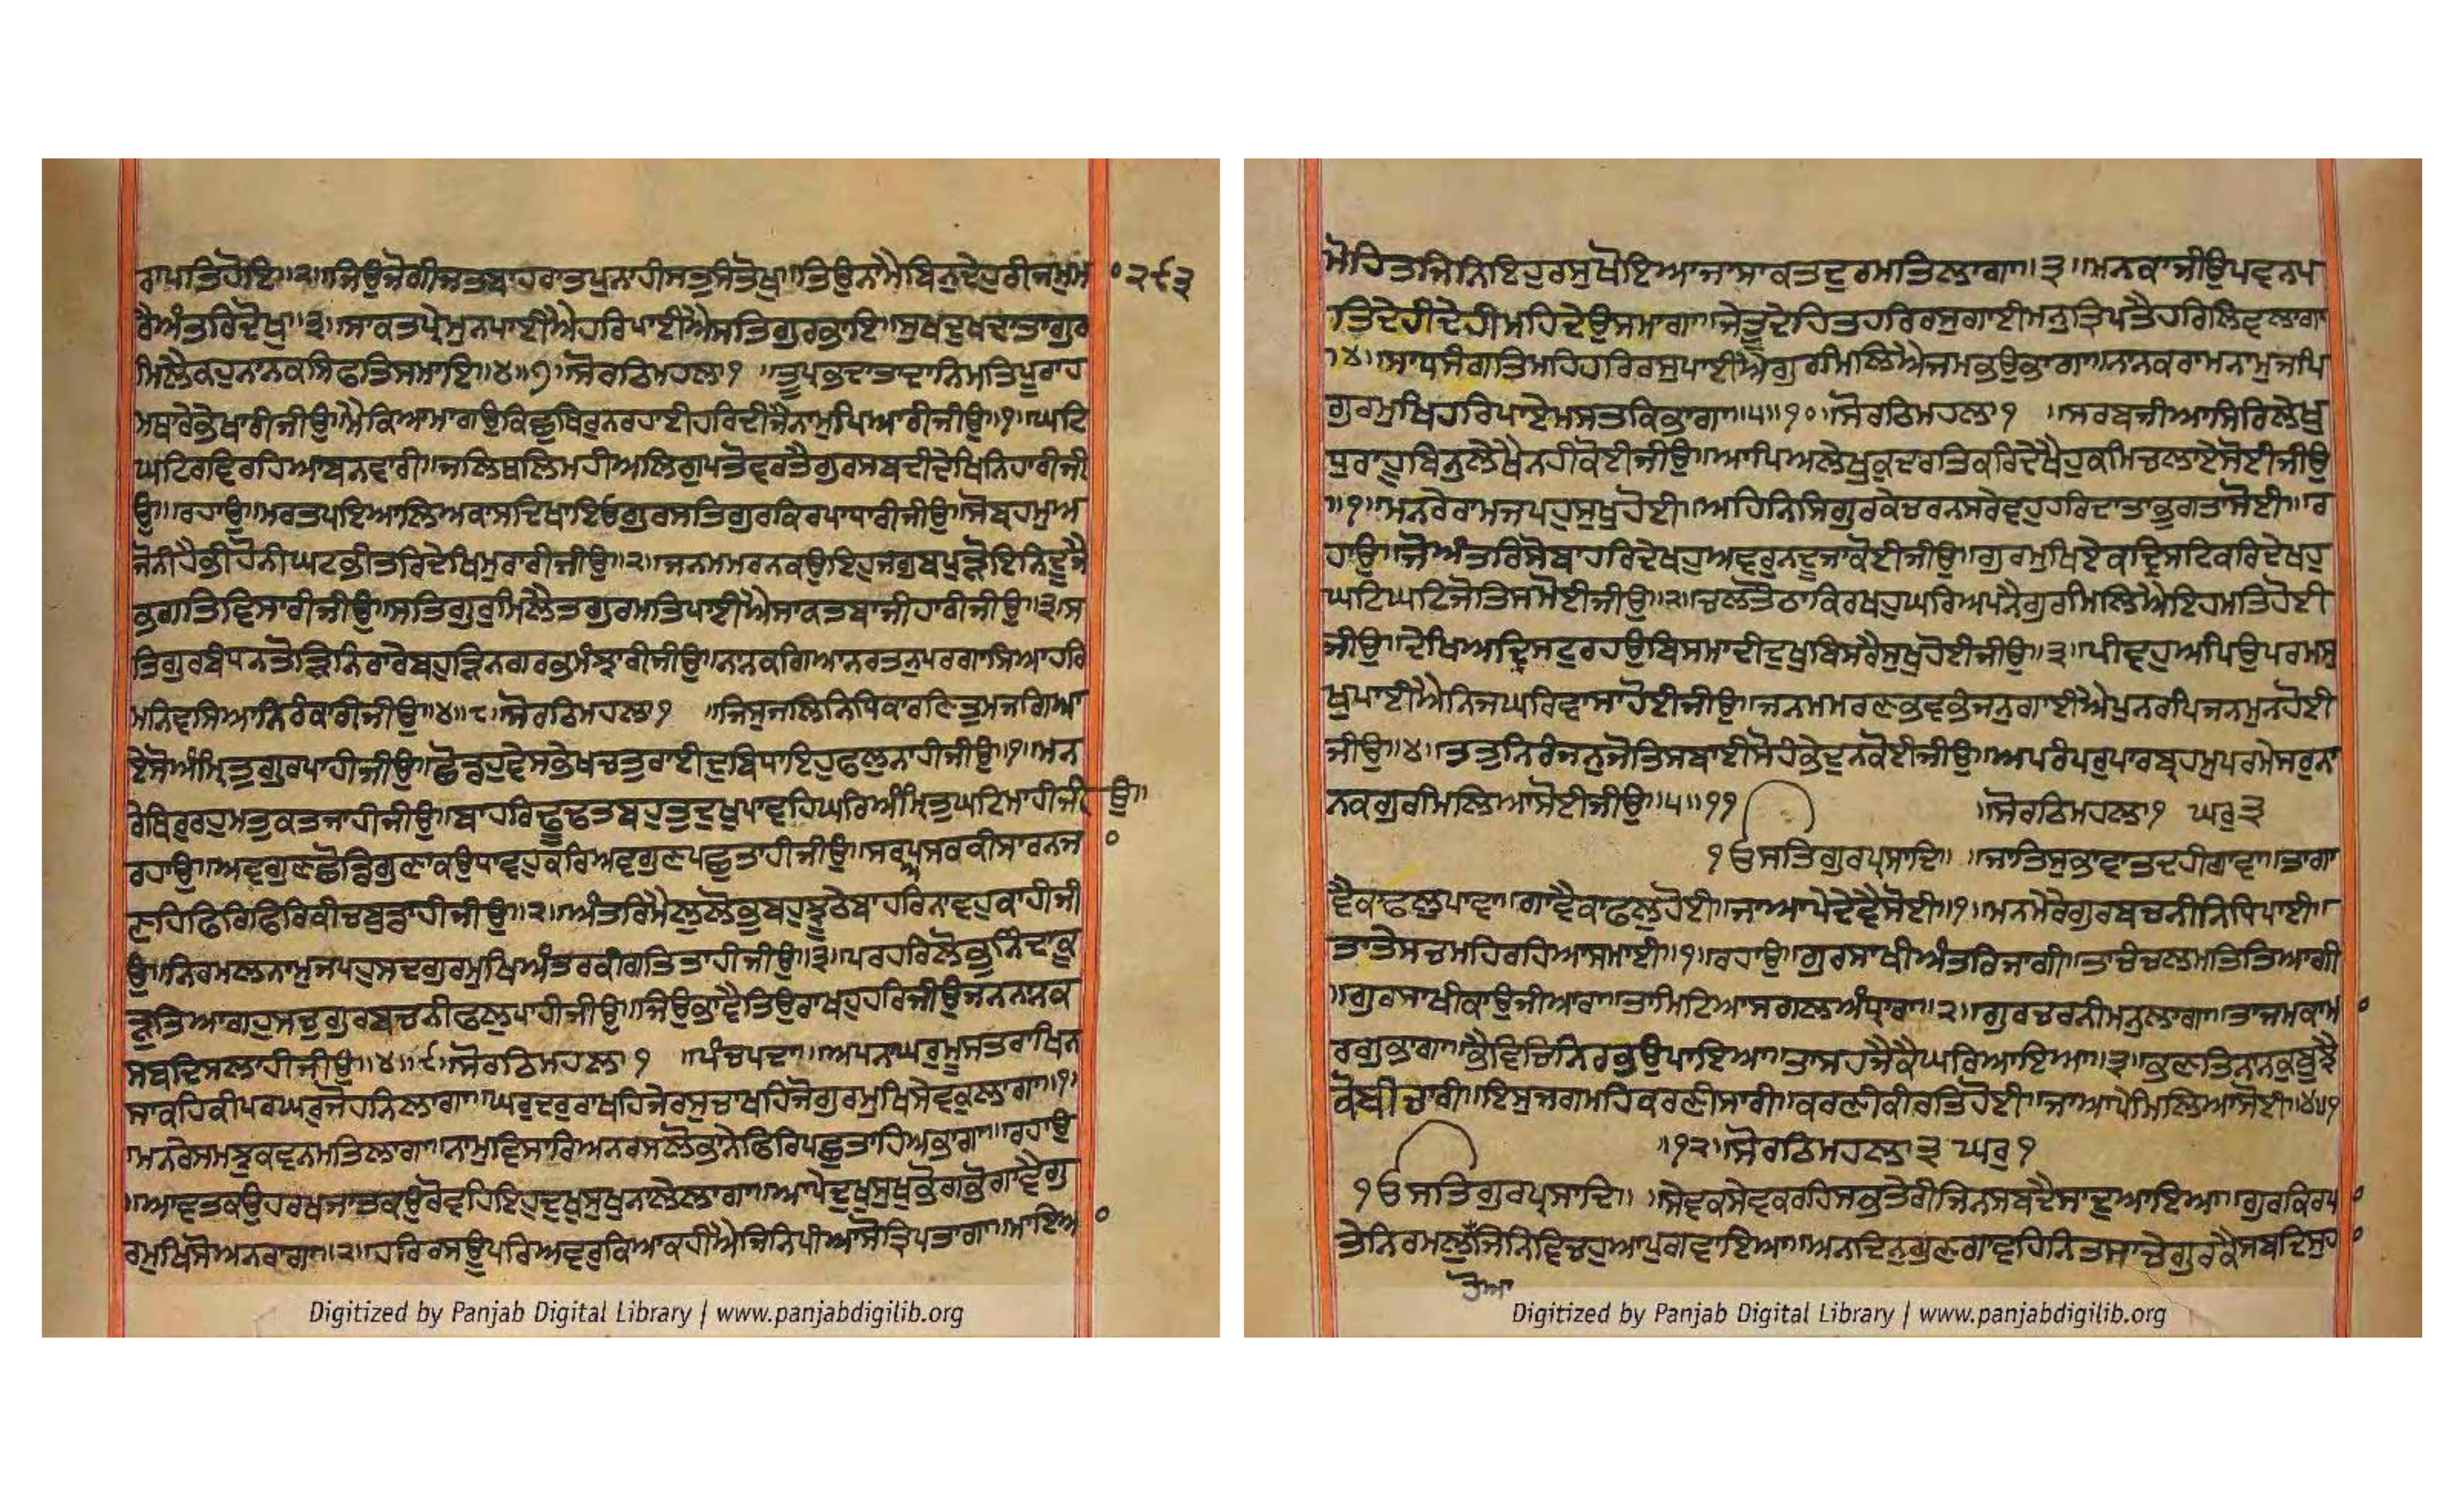 ਰਾਪਤਿਹੋਇ॥੨॥ਜਿਉਜੋਗੀਜਤਬਾਹਰਾਤਪੁਨਾਹੀਸਤੁਸੰਤੋਖੁ॥ਤਿਉਨਾਮੈਬਿਨੁਦੇਹੁਰੀਜਮੁਮਾ
੨੯੩
ਰੈਅੰਤਰਿਦੋਖੁ॥੩॥ਸਾਕਤਪ੍ਰੇਮੁਨਪਾਈਐਹਰਿਪਾਈਐਸਤਿਗੁਰਭਾਇ॥ਸੁਖਦੁਖਦਾਤਾਗੁਰ
ਮਿਲੈਕਹੁਨਾਨਕਸਿਫਤਿਸਮਾਇ॥੪॥੭॥ਸੋਰਠਿਮਹਲਾ੧ ॥ਤੂਪ੍ਰਭਦਾਤਾਦਾਨਿਮਤਿਪੂਰਾਹ
ਮਥਾਰੇਭੇਖਾਰੀਜੀਉ॥ਮੈਕਿਆਮਾਗਉਕਿਛੁਥਿਰੁਨਰਹਾਈਹਰਿਦੀਜੈਨਾਮੁਪਿਆਰੀਜੀਉ॥੧॥ਘਟਿ
ਘਟਿਰਵਿਰਹਿਆਬਨਵਾਰੀ॥ਜਲਿਥਲਿਮਹੀਅਲਿਗੁਪਤੋਵਰਤੈਗੁਰਸਬਦੀਦੇਖਿਨਿਹਾਰੀਜੀ
ਉ॥ਰਹਾਉ॥ਮਰਤਪਇਆਲਿਅਕਾਸਦਿਖਾਇਓਗੁਰਸਤਿਗੁਰਕਿਰਪਾਧਾਰੀਜੀਉ॥ਸੋਬ੍ਰਹਮੁਅ
ਜੋਨੀਹੈਭੀਹੋਨੀਘਟਭੀਤਰਿਦੇਖਿਮੁਰਾਰੀਜੀਉ॥੨॥ਜਨਮਮਰਨਕਉਇਹੁਜਗੁਬਪੁੜੋਇਨਿਦੂਜੈ
ਭਗਤਿਵਿਸਾਰੀਜੀਉ॥ਸਤਿਗੁਰੁਮਿਲੈਤਗੁਰਮਤਿਪਾਈਐਸਾਕਤਬਾਜੀਹਾਰੀਜੀਉ॥੩॥ਸ
ਤਿਗੁਰਬੰਧਨਤੋੜਿਨਿਰਾਰੇਬਹੁੜਿਨਗਰਭਮੰਝਾਰੀਜੀਉ॥ਨਾਨਕਗਿਆਨਰਤਨੁਪਰਗਾਸਿਆਹਰਿ
ਮਨਿਵਸਿਆਨਿਰੰਕਾਰੀਜੀਉ॥੪॥੮॥ਸੋਰਠਿਮਹਲਾ੧ ॥ਜਿਸੁਜਲਨਿਧਿਕਾਰਣਿਤੁਮਜਗਿਆ
ਏਸੋਅੰਮ੍ਰਿਤੁਗੁਰਪਾਹੀਜੀਉ॥ਛੋਡਹੁਵੇਸਭੇਖਚਤੁਰਾਈਦੁਬਿਧਾਇਹੁਫਲੁਨਾਹੀਜੀਉ॥੧॥ਮਨ
ਰੇਥਿਰੁਰਹੁਮਤੁਕਤਜਾਹੀਜੀਉ॥ਬਾਹਰਿਢੂਢਤਬਹੁਤੁਦੁਖੁਪਾਵਹਿਘਰਿਅੰਮ੍ਰਿਤੁਘਟਿਮਾਹੀਜੀ ਉ॥
ਰਹਾਉ॥ਅਵਗੁਣਛੋਡਿਗੁਣਾਕਉਧਾਵਹੁਕਰਿਅਵਗੁਣਪਛੁਤਾਹੀਜੀਉ॥ਸਰਅਪਸਰਕੀਸਾਰਨਜਾ
ਣਹਿਫਿਰਿਫਿਰਿਕੀਚਬੁਡਾਹੀਜੀਉ॥੨॥ਅੰਤਰਿਮੈਲੁਲੋਭਬਹੁਝੂਠੇਬਾਹਰਿਨਾਵਹੁਕਾਹੀਜੀ
ਉ॥ਨਿਰਮਲਨਾਮੁਜਪਹੁਸਦਗੁਰਮੁਖਿਅੰਤਰਕੀਗਤਿਤਾਹੀਜੀਉ॥੩॥ਪਰਹਰਿਲੋਭੁਨਿੰਦਾਕੂ
ੜੁਤਿਆਗਹੁਸਚੁਗੁਰਬਚਨੀਫਲੁਪਾਹੀਜੀਉ॥ਜਿਉਭਾਵੈਤਿਉਰਾਖਹੁਹਰਿਜੀਉਜਨਨਾਨਕ
ਸਬਦਿਸਲਾਹੀਜੀਉ॥੪॥੯॥ਸੋਰਠਿਮਹਲਾ੧ ॥ਪੰਚਪਦਾ॥ਅਪਨਾਘਰੁਮੂਸਤਰਾਖਿਨ
ਸਾਕਹਿਕੀਪਰਘਰੁਜੋਹਨਿਲਾਗਾ॥ਘਰੁਦਰੁਰਾਖਹਿਜੇਰਸੁਚਾਖਹਿਜੋਗੁਰਮੁਖਿਸੇਵਕੁਲਾਗਾ॥੧॥
ਮਨਰੇਸਮਝੁਕਵਨਮਤਿਲਾਗਾ॥ਨਾਮੁਵਿਸਾਰਿਅਨਰਸਲੋਭਾਨੇਫਿਰਿਪਛੁਤਾਹਿਅਭਾਗਾ॥ਰਹਾਉ
॥ਆਵਤਕਉਹਰਖਜਾਤਕਉਰੋਵਹਿਇਹੁਦੁਖੁਸੁਖੁਨਾਲੇਲਾਗਾ॥ਆਪੇਦੁਖੁਸੁਖੁਭੋਗਭੋਗਾਵੈਗੁ
ਰਮੁਖਿਸੋਅਨਰਾਗਾ॥੨॥ਹਰਿਰਸਊਪਰਿਅਵਰੁਕਿਆਕਹੀਐਜਿਨਿਪੀਆਸੋਤ੍ਰਿਪਤਾਗਾ॥ਮਾਇਆ
Digitized by Panjab Digital Library | www.panjabdigilib.org
ਮੋਹਿਤਜਿਨਿਇਹੁਰਸੁਖੋਇਆਜਾਸਾਕਤਦੁਰਮਤਿਲਾਗਾ॥੩॥ਮਨਕਾਜੀਉਪਵਨਪ
ਤਿਦੇਹੀਦੇਹੀਮਹਿਦੇਉਸਮਾਗਾ॥ਜੇਤੂਦੇਹਿਤਹਰਿਰਸੁਗਾਈਮਨੁਤ੍ਰਿਪਤੈਹਰਿਲਿਵਲਾਗਾ
॥੪॥ਸਾਧਸੰਗਤਿਮਹਿਹਰਿਰਸੁਪਾਈਐਗੁਰਮਿਲਿਐਜਮਭਉਭਾਗਾ॥ਨਾਨਕਰਾਮਨਾਮੁਜਪਿ
ਗੁਰਮੁਖਿਹਰਿਪਾਏਮਸਤਕਿਭਾਗਾ॥੫॥੧੦॥ਸੋਰਠਿਮਹਲਾ੧ ॥ਸਰਬਜੀਆਸਿਰਿਲੇਖੁ
ਧੁਰਾਹੂਬਿਨੁਲੇਖੈਨਹੀਕੋਈਜੀਉ॥ਆਪਿਅਲੇਖੁਕੁਦਰਤਿਕਰਿਦੇਖੈਹੁਕਮਿਚਲਾਏਸੋਈਜੀਉ
॥੧॥ਮਨਰੇਰਾਮਜਪਹੁਸੁਖੁਹੋਈ॥ਅਹਿਨਿਸਿਗੁਰਕੇਚਰਨਸਰੇਵਹੁਹਰਿਦਾਤਾਭੁਗਤਾਸੋਈ॥ਰ
ਹਾਉ॥ਜੋਅੰਤਰਿਸੋਬਾਹਰਿਦੇਖਹੁਅਵਰੁਨਦੂਜਾਕੋਈਜੀਉ॥ਗੁਰਮੁਖਿਏਕਦ੍ਰਿਸਟਿਕਰਿਦੇਖਹੁ
ਘਟਿਘਟਿਜੋਤਿਸਮੋਈਜੀਉ॥੨॥ਚਲਤੋਠਾਕਿਰਖਹੁਘਰਿਅਪਨੈਗੁਰਮਿਲਿਐਇਹਮਤਿਹੋਈ
ਜੀਉ॥ਦੇਖਿਅਦ੍ਰਿਸਟੁਰਹਉਬਿਸਮਾਦੀਦੁਖੁਬਿਸਰੈਸੁਖੁਹੋਈਜੀਉ॥੩॥ਪੀਵਹੁਅਪਿਉਪਰਮਸੁ
ਖੁਪਾਈਐਨਿਜਘਰਿਵਾਸਾਹੋਈਜੀਉ॥ਜਨਮਮਰਣਭਵਭੰਜਨੁਗਾਈਐਪੁਨਰਪਿਜਨਮੁਨਹੋਈ
ਜੀਉ॥੪॥ਤਤੁਨਿਰੰਜਨੁਜੋਤਿਸਬਾਈਸੋਹੰਭੇਦੁਨਕੋਈਜੀਉ॥ਅਪਰੰਪਰਪਾਰਬ੍ਰਹਮੁਪਰਮੇਸਰੁਨਾ
ਨਕਗੁਰਮਿਲਿਆਸੋਈਜੀਉ॥੫॥੧੧ ॥ਸੋਰਠਿਮਹਲਾ੧ ਘਰੁ੩
ੴਸਤਿਗੁਰਪ੍ਰਸਾਦਿ॥ ॥ਜਾਤਿਸੁਭਾਵਾਤਦਹੀਗਾਵਾ॥ਤਾਗਾ
ਵੈਕਾਫਲੁਪਾਵਾ॥ਗਾਵੈਕਾਫਲੁਹੋਈ॥ਜਾਆਪੇਦੇਵੈਸੋਈ॥੧॥ਮਨਮੇਰੇਗੁਰਬਚਨੀਨਿਧਿਪਾਈ॥
ਤਾਤੇਸਚਮਹਿਰਹਿਆਸਮਾਈ॥੧॥ਰਹਾਉ॥ਗੁਰਸਾਖੀਅੰਤਰਿਜਾਗੀ॥ਤਾਚੰਚਲਮਤਿਤਿਆਗੀ
॥ਗੁਰਸਾਖੀਕਾਉਜੀਆਰਾ॥ਤਾਮਿਟਿਆਸਗਲਅੰਧ੍ਯਾਰਾ॥੨॥ਗੁਰਚਰਨੀਮਨੁਲਾਗਾ॥ਤਾਜਮਕਾਮਾ
ਰਗੁਭਾਗਾ॥ਭੈਵਿਚਿਨਿਰਭਉਪਾਇਆ॥ਤਾਸਹਜੈਕੈਘਰਿਆਇਆ॥੩॥ਭਣਤਿਨਾਨਕੁਬੂਝੈ
ਕੋਬੀਚਾਰੀ॥ਇਸੁਜਗਮਹਿਕਰਣੀਸਾਰੀ॥ਕਰਣੀਕੀਰਤਿਹੋਈ॥ਜਾਆਪੇਮਿਲਿਆਸੋਈ॥੪॥੧
॥੧੨॥ਸੋਰਠਿਮਹਲਾ੩ ਘਰੁ੧
ੴਸਤਿਗੁਰਪ੍ਰਸਾਦਿ॥ ॥ਸੇਵਕਸੇਵਕਰਹਿਸਭਤੇਰੀਜਿਨਸਬਦੈਸਾਦੁਆਇਆ॥ਗੁਰਕਿਰਪਾ
ਤੇਨਿਰਮਲੁਜਿਨਿਵਿਚਹੁਆਪੁਗਵਾਇਆ॥ਅਨਦਿਨੁਗੁਣਗਾਵਹਿਨਿਤਸਾਚੇਗੁਰਕੈਸਬਦਿਸੁਹਾ
ਹੋਆ
Digitized by Panjab Digital Library | www.panjabdigilib.org